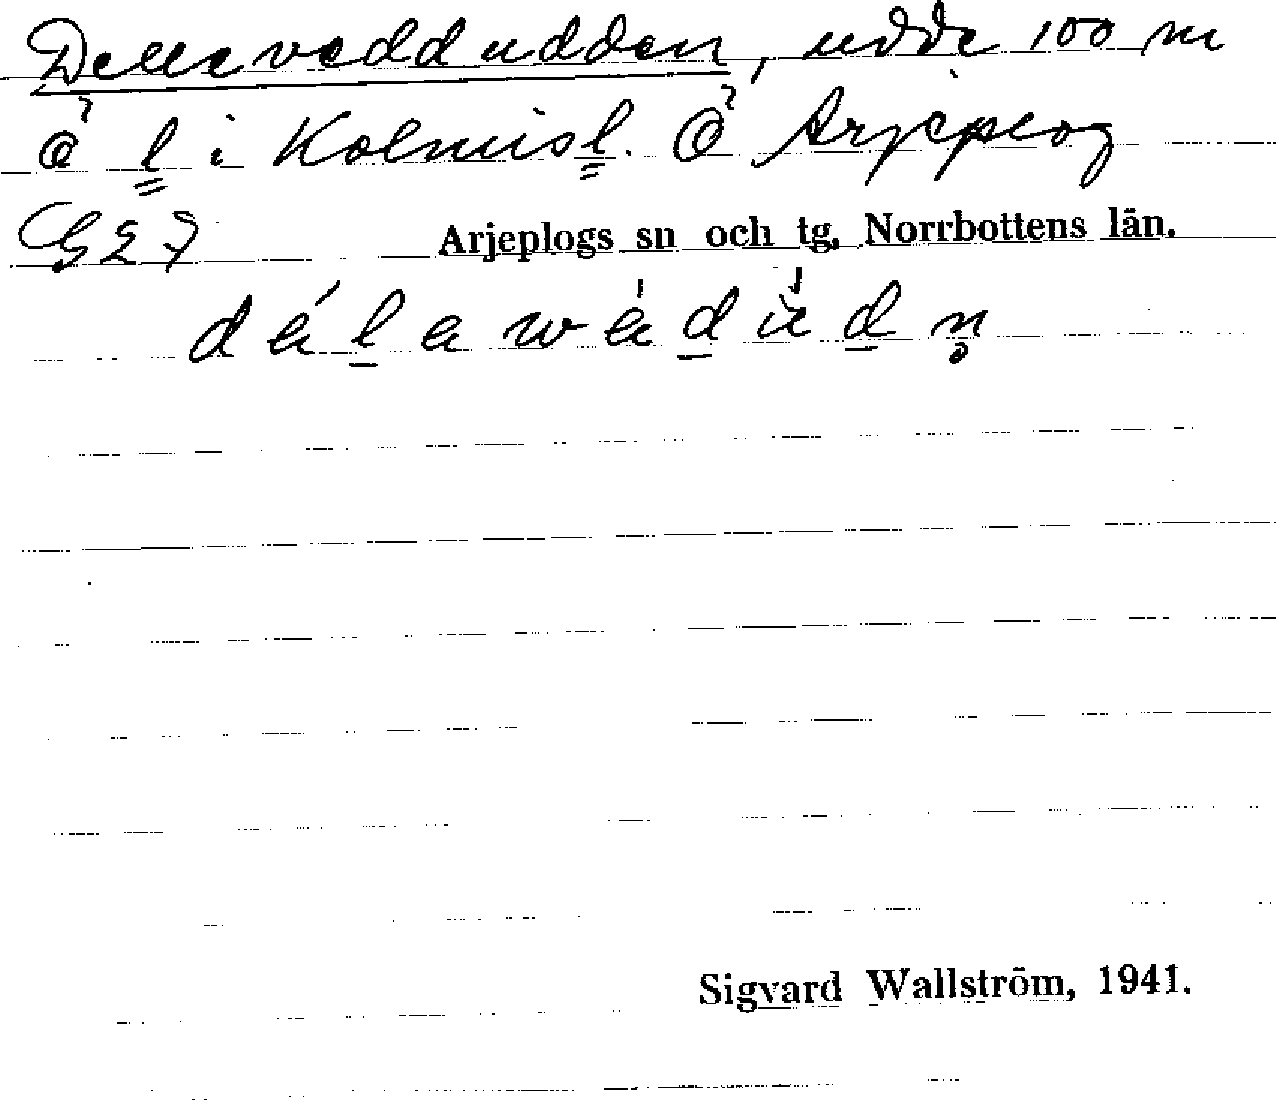 Dellevaddudden, udde 100 m
Ö l i Kolmisl. Ö Arjeplog
G27
Arjeplogs sn och tg. Norrbottens län.
Sigvard Wallström, 1941.